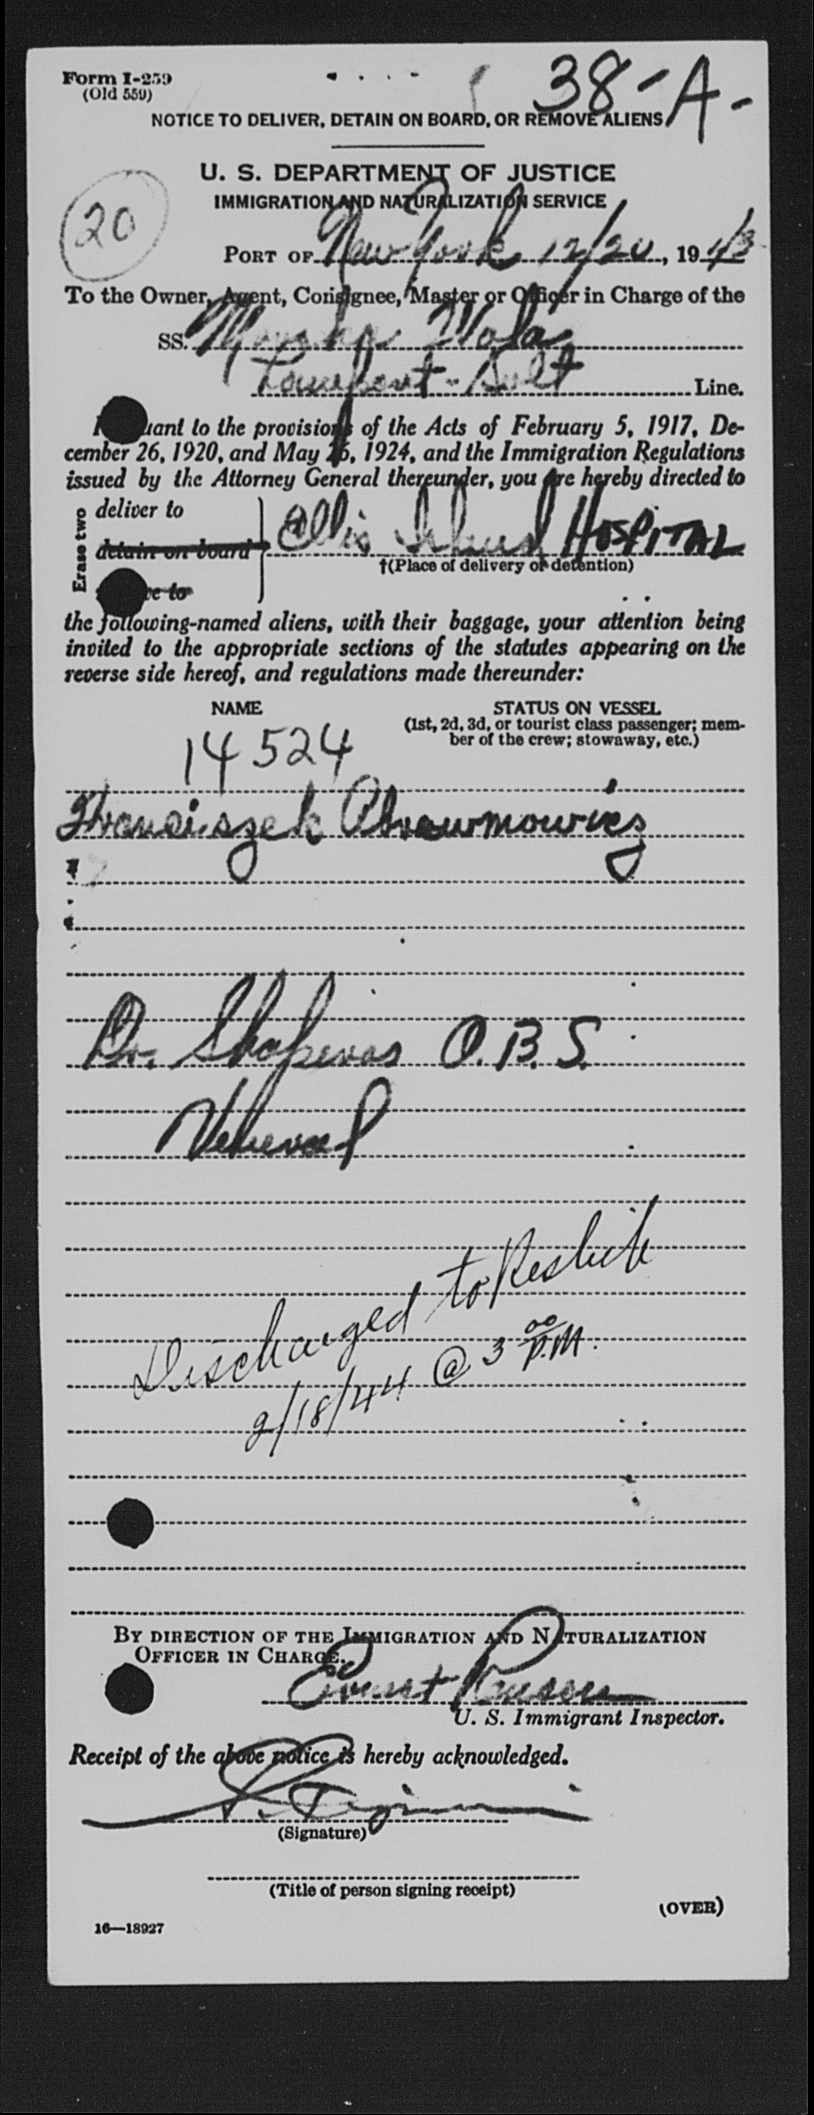 Form I-259
(Old 559)
38-A-
NOTICE TO DELIVER, DETAIN ON BOARD, OR REMOVE ALIENS
U. S. DEPARTMENT OF JUSTICE
IMMIGRATION AND NATURALIZATION SERVICE
20
PORT OF New York 12/20, 1943
To the Owner, Agent, Consignee, Master or Officer in Charge of the
SS. Wola
Line.
to the provisions of the Acts of February 5, 1917, De-
cember 26, 1920, and May 26, 1924, and the Immigration Regulations
issued by the Attorney General thereunder, you are hereby directed to
Erase two
deliver to
detain on board
to
Ellis Island HOSPITAL
†(Place of delivery or detention)
the following-named aliens, with their baggage, your attention being
invited to the appropriate sections of the statutes appearing on the
reverse side hereof, and regulations made thereunder:
NAME
STATUS ON VESSEL
(1st, 2d, 3d, or tourist class passenger; mem-
ber of the crew; stowaway, etc.)
14524
Franciszek
Dr. O.B.S.
Venereal
Discharged to
2/18/44 @ 3 00 P.M.
BY DIRECTION OF THE IMMIGRATION AND NATURALIZATION
OFFICER IN CHARGE.
U. S. Immigrant Inspector.
Receipt of the above notice is hereby acknowledged.
(Signature)
(Title of person signing receipt)
(OVER)
16—18927